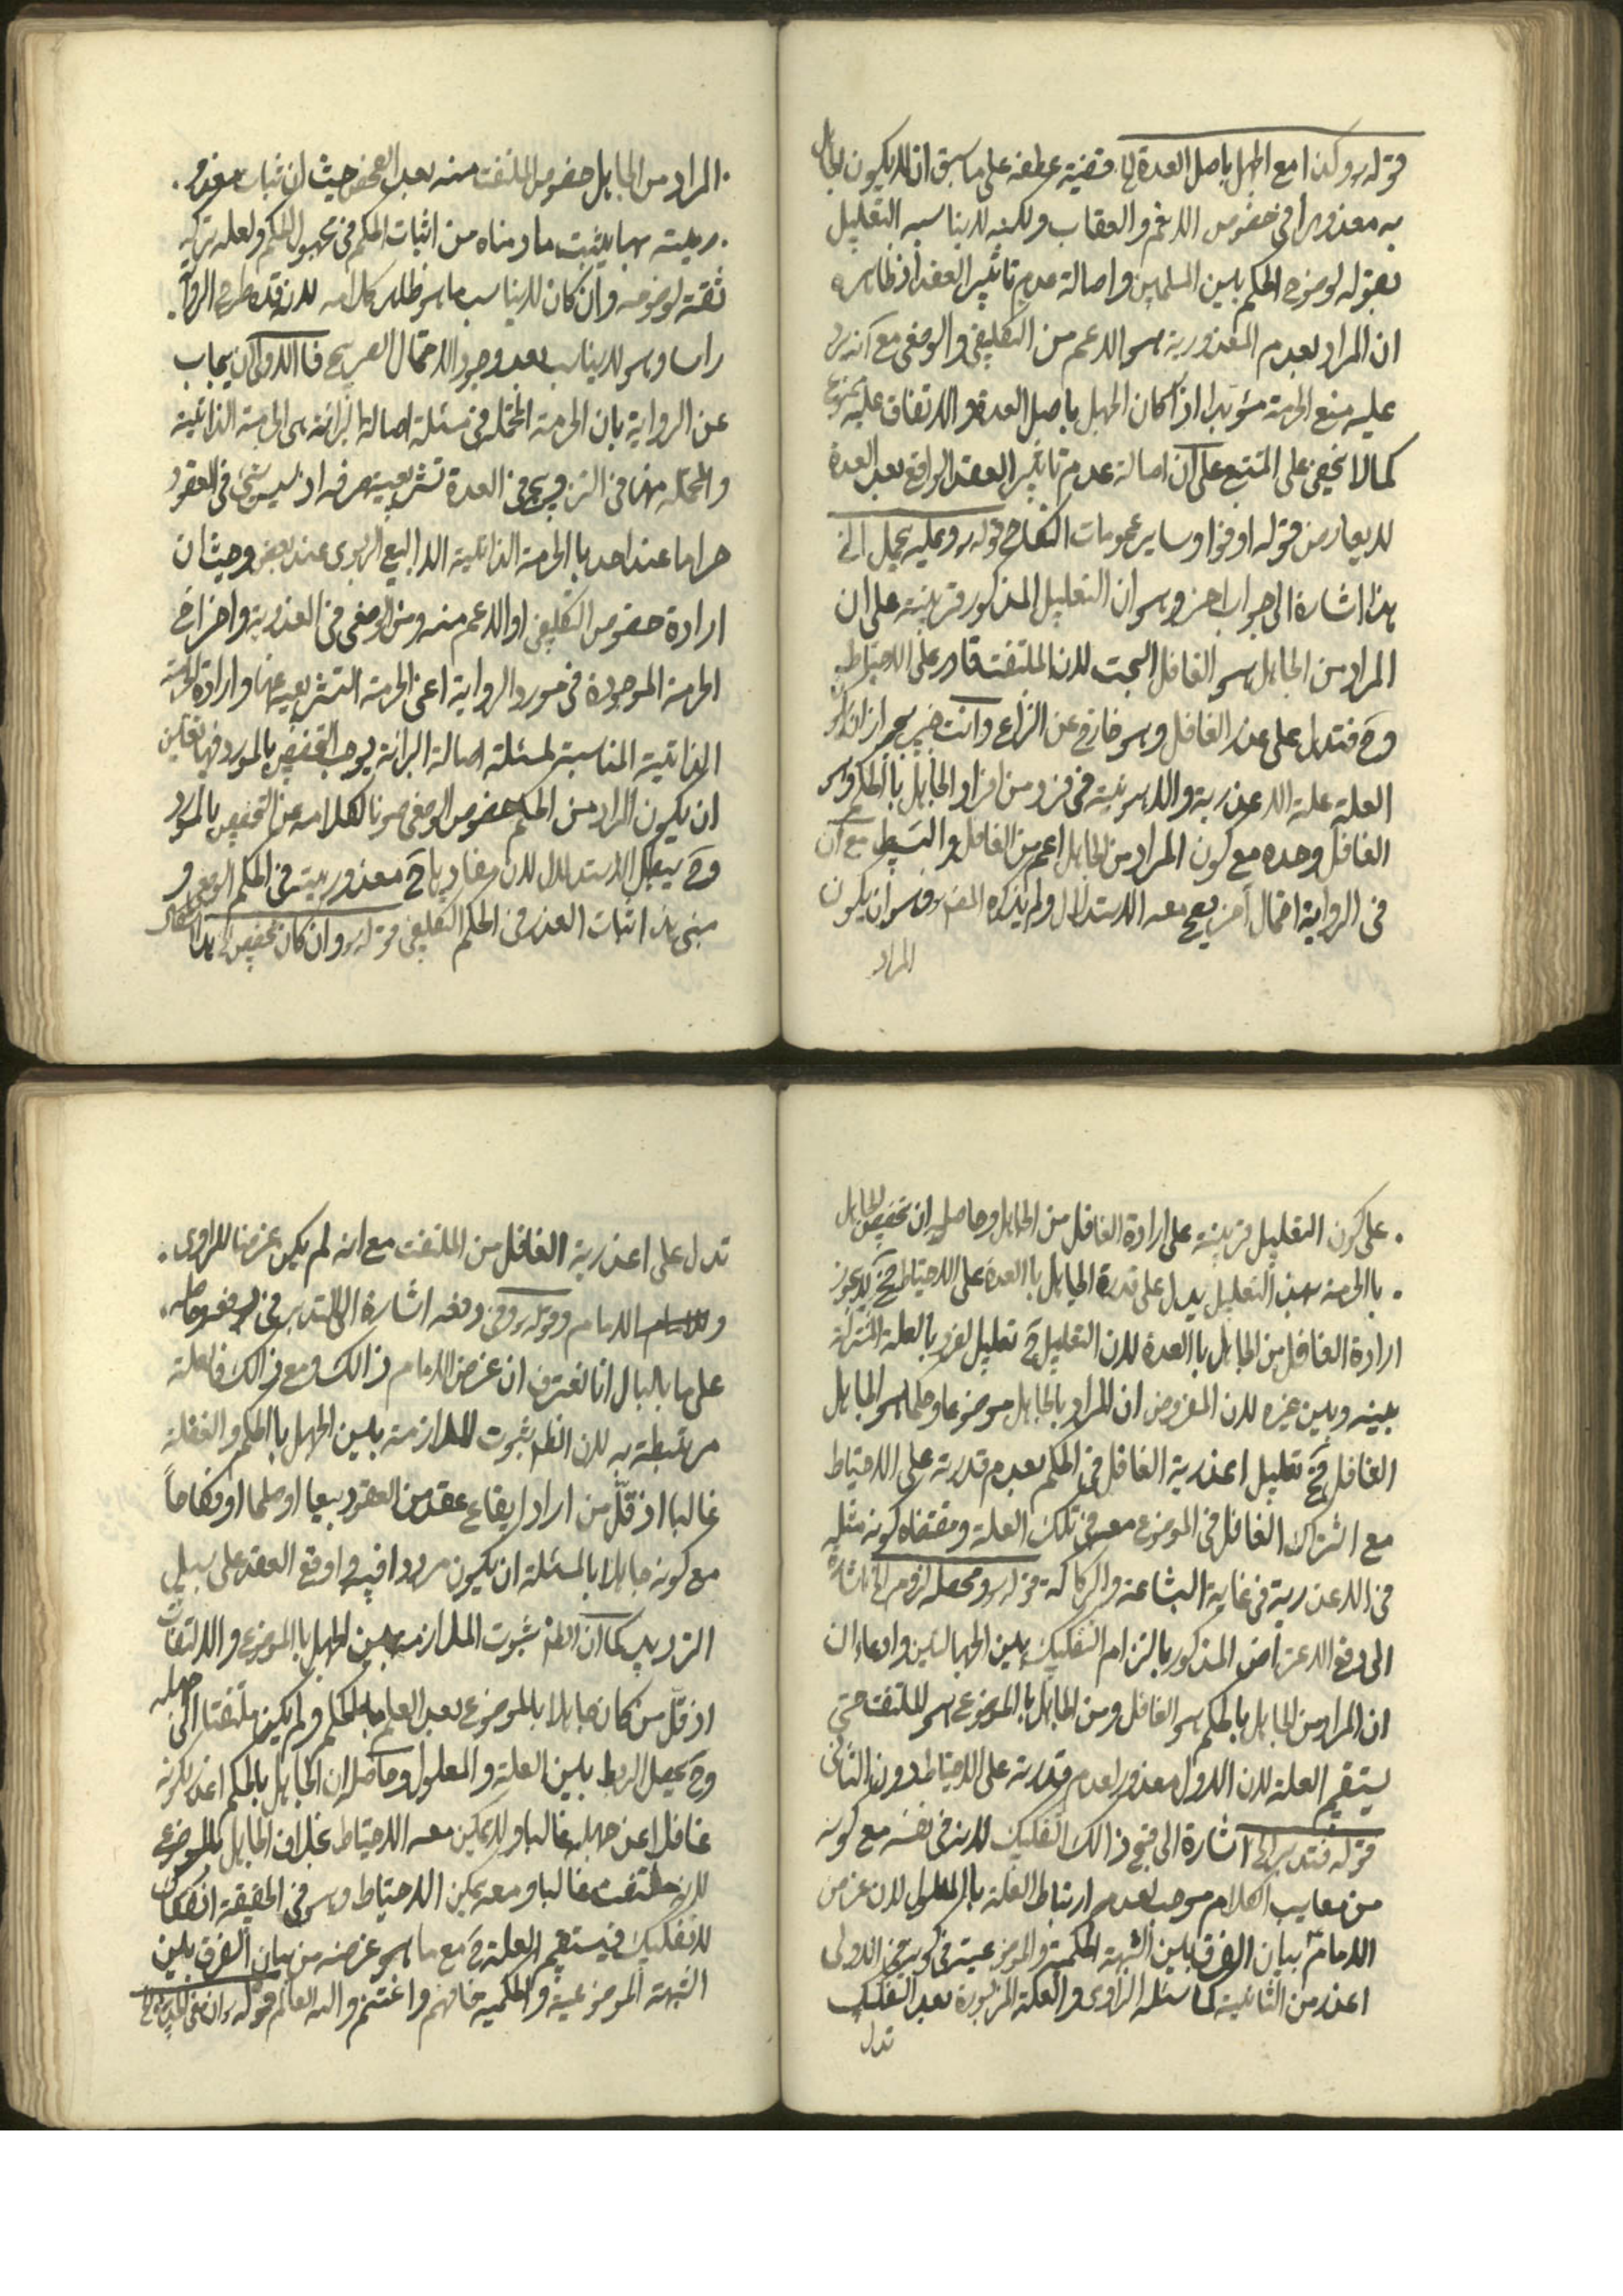 قوله ره وكذا مع الجهل باصل العدة الخ قضية عطفه على ما سبق ان لا يكون الجاهل
به معذورا في خصوص الاثم والعقاب ولكنه لا يناسبه التعليل
بقوله لوضوح الحكم بين المسلمين واصالة عدم تاثير العقد اذ ظاهره
ان المراد بعدم المعذورية هو الاعم من التكليفي والوضعي مع انه يرد
عليه منع الحرمة مؤبدا اذا كان الجهل باصل العدة والاتفاق عليه ممنوع
كما لا يخفى على المتتبع على ان اصالة عدم تاثير العقد الواقع بعد العدة
لا يعارض قوله اوفوا وساير عمومات النكاح قوله ره وعليه يحمل الخ
هذا اشارة الى جواب اخر وهو ان التعليل المذكور قرينة على ان
المراد من الجاهل هو الغافل البحت لان الملتفت قادر على الاحتياط
وح فتدل على عذر الغافل وهو خارج عن النزاع وانت خبير بجواز ان يكون
العلة علة الاعذرية والاهونية في فرد من افراد الجاهل بالحكم وهو
الغافل وحده مع كون المراد من الجاهل اعم من الغافل والبسيط مع ان
في الرواية احتمال آخر يصح معه الاستدلال ولم يذكره المصنف وهو ان يكون
المراد
المراد من الجاهل خصوص الملتفت منه بعد الفحص حيث ان ثبات معذور
ريته بها يثبت ما رمناه من اثبات الحكم في مجهول الحكم ولعله تركه
ثقة لوضوحه وان كان لا يناسب ما هو ظاهر كلامه لان قده طرح الرواية
راسا وهو لا يناسب بعد وجود الاحتمال الصريح فالاولى ان يجاب
عن الرواية بان الحرمة المحتملة في مسئلة اصالة البرائة هي الحرمة الذاتية
والمحتملة هنا في التزويج في العدة تشريعية صرفة اذ ليس شئ في العقود
حراما عند احد بالحرمة الذاتية الا البيع الربوي عند بعض وحيث ان
ارادة خصوص التكليفي او الاعم منه ومن الوضعي في العذرية واخراج
الحرمة الموجودة في مورد الرواية اعني الحرمة التشريعية عنها وارادة الحرمة
الذاتية المناسبة لمسئلة اصالة البرائة يوجب التخصيص بالمورد فيها تعين
ان يكون المراد من الحكم خصوص الوضعي صونا لكلامه عن التخصيص بالمورد
وح يبطل الاستدلال لان مفادها ح معذوريته في الحكم الوضعي و
مبنى هذا اثبات العذر في الحكم التكليفي قوله ره وان كان تخصيص الخ هذا اشكال
على كون التعليل قرينة على ارادة الغافل من الجاهل وحاصله ان تخصيص الجاهل
بالحرمة بهذا التعليل يدل على قدرة الجاهل بالعدة على الاحتياط فح لا يجوز
ارادة الغافل من الجاهل بالعدة لان التعليل ح تعليل لفرد بالعلة المشتركة
بينه وبين غيره لان المفروض ان المراد بالجاهل موضوعا وحكما هو الجاهل
الغافل فح تعليل اعذرية الغافل في الحكم بعدم قدرته على الاحتياط
مع اشتراك الغافل في الموضوع معه في تلك العلة ومقتضاه كونه مثله
في الاعذرية في غاية البشاعة والركاكة قوله ره ومحصله لزوم الخ اشارة
الى دفع الاعتراض المذكور بالتزام التفكيك بين الجهالتين وادعاء ان
ان المراد من الجاهل بالحكم هو الغافل ومن الجاهل بالموضوع هو الملتفت حتى
يستقيم العلة لان الاول معذور لعدم قدرته على الاحتياط دون الثاني
قوله فتدبر الخ اشارة الى قبح ذالك التفكيك لانه في نفسه مع كونه
من معايب الكلام موجب لعدم ارتباط العلة بالمعلول لان غرض
الامام ع بيان الفرق بين الشبهة الحكمية والموضوعية في كون الاولى
اعذر من الثانية كما سئله الراوي والعلة المزبورة بعد التفكيك
تدل
تدل على اعذرية الغافل من الملتفت مع انه لم يكن غرضا للراوي
و الامام وقوله ره وفي دفعه اشارة الى التدبر في دفعه وحاصله
على ما بالبال انا نعترف ان غرض الامام ذالك ومع ذالك فالعلة
مرتبطة به لان الظاهر ثبوت الملازمة بين الجهل بالحكم والغفلة
غالبا اذ قلّ من اراد ايقاع عقد من العقود بيعا او صلحا او نكاحاً
مع كونه جاهلا بالمسئلة ان يكون مرددا فيه واوقع العقد على سبيل
الترديد كما ان الظاهر ثبوت الملازمة بين الجهل بالموضوع والالتفات
اذ قلّ من كان جاهلا بالموضوع بعد العلم بالحكم ولم يكن ملتفتا الى جهله
وح يحصل الربط بين العلة والمعلول وحاصله ان الجاهل بالحكم اعذر لكونه
غافلا عن جهله غالبا ولا يمكن معه الاحتياط بخلاف الجاهل بالموضوع
لانه ملتفت غالبا ومعه يمكن الاحتياط وهو في الحقيقة انفكاك
لا تفكيك فيستقيم العلة ح مع ما هو غرضه من بيان الفرق بين
الشبهة الموضوعية والحكمية فافهم واغتنم والله العالم قوله ره